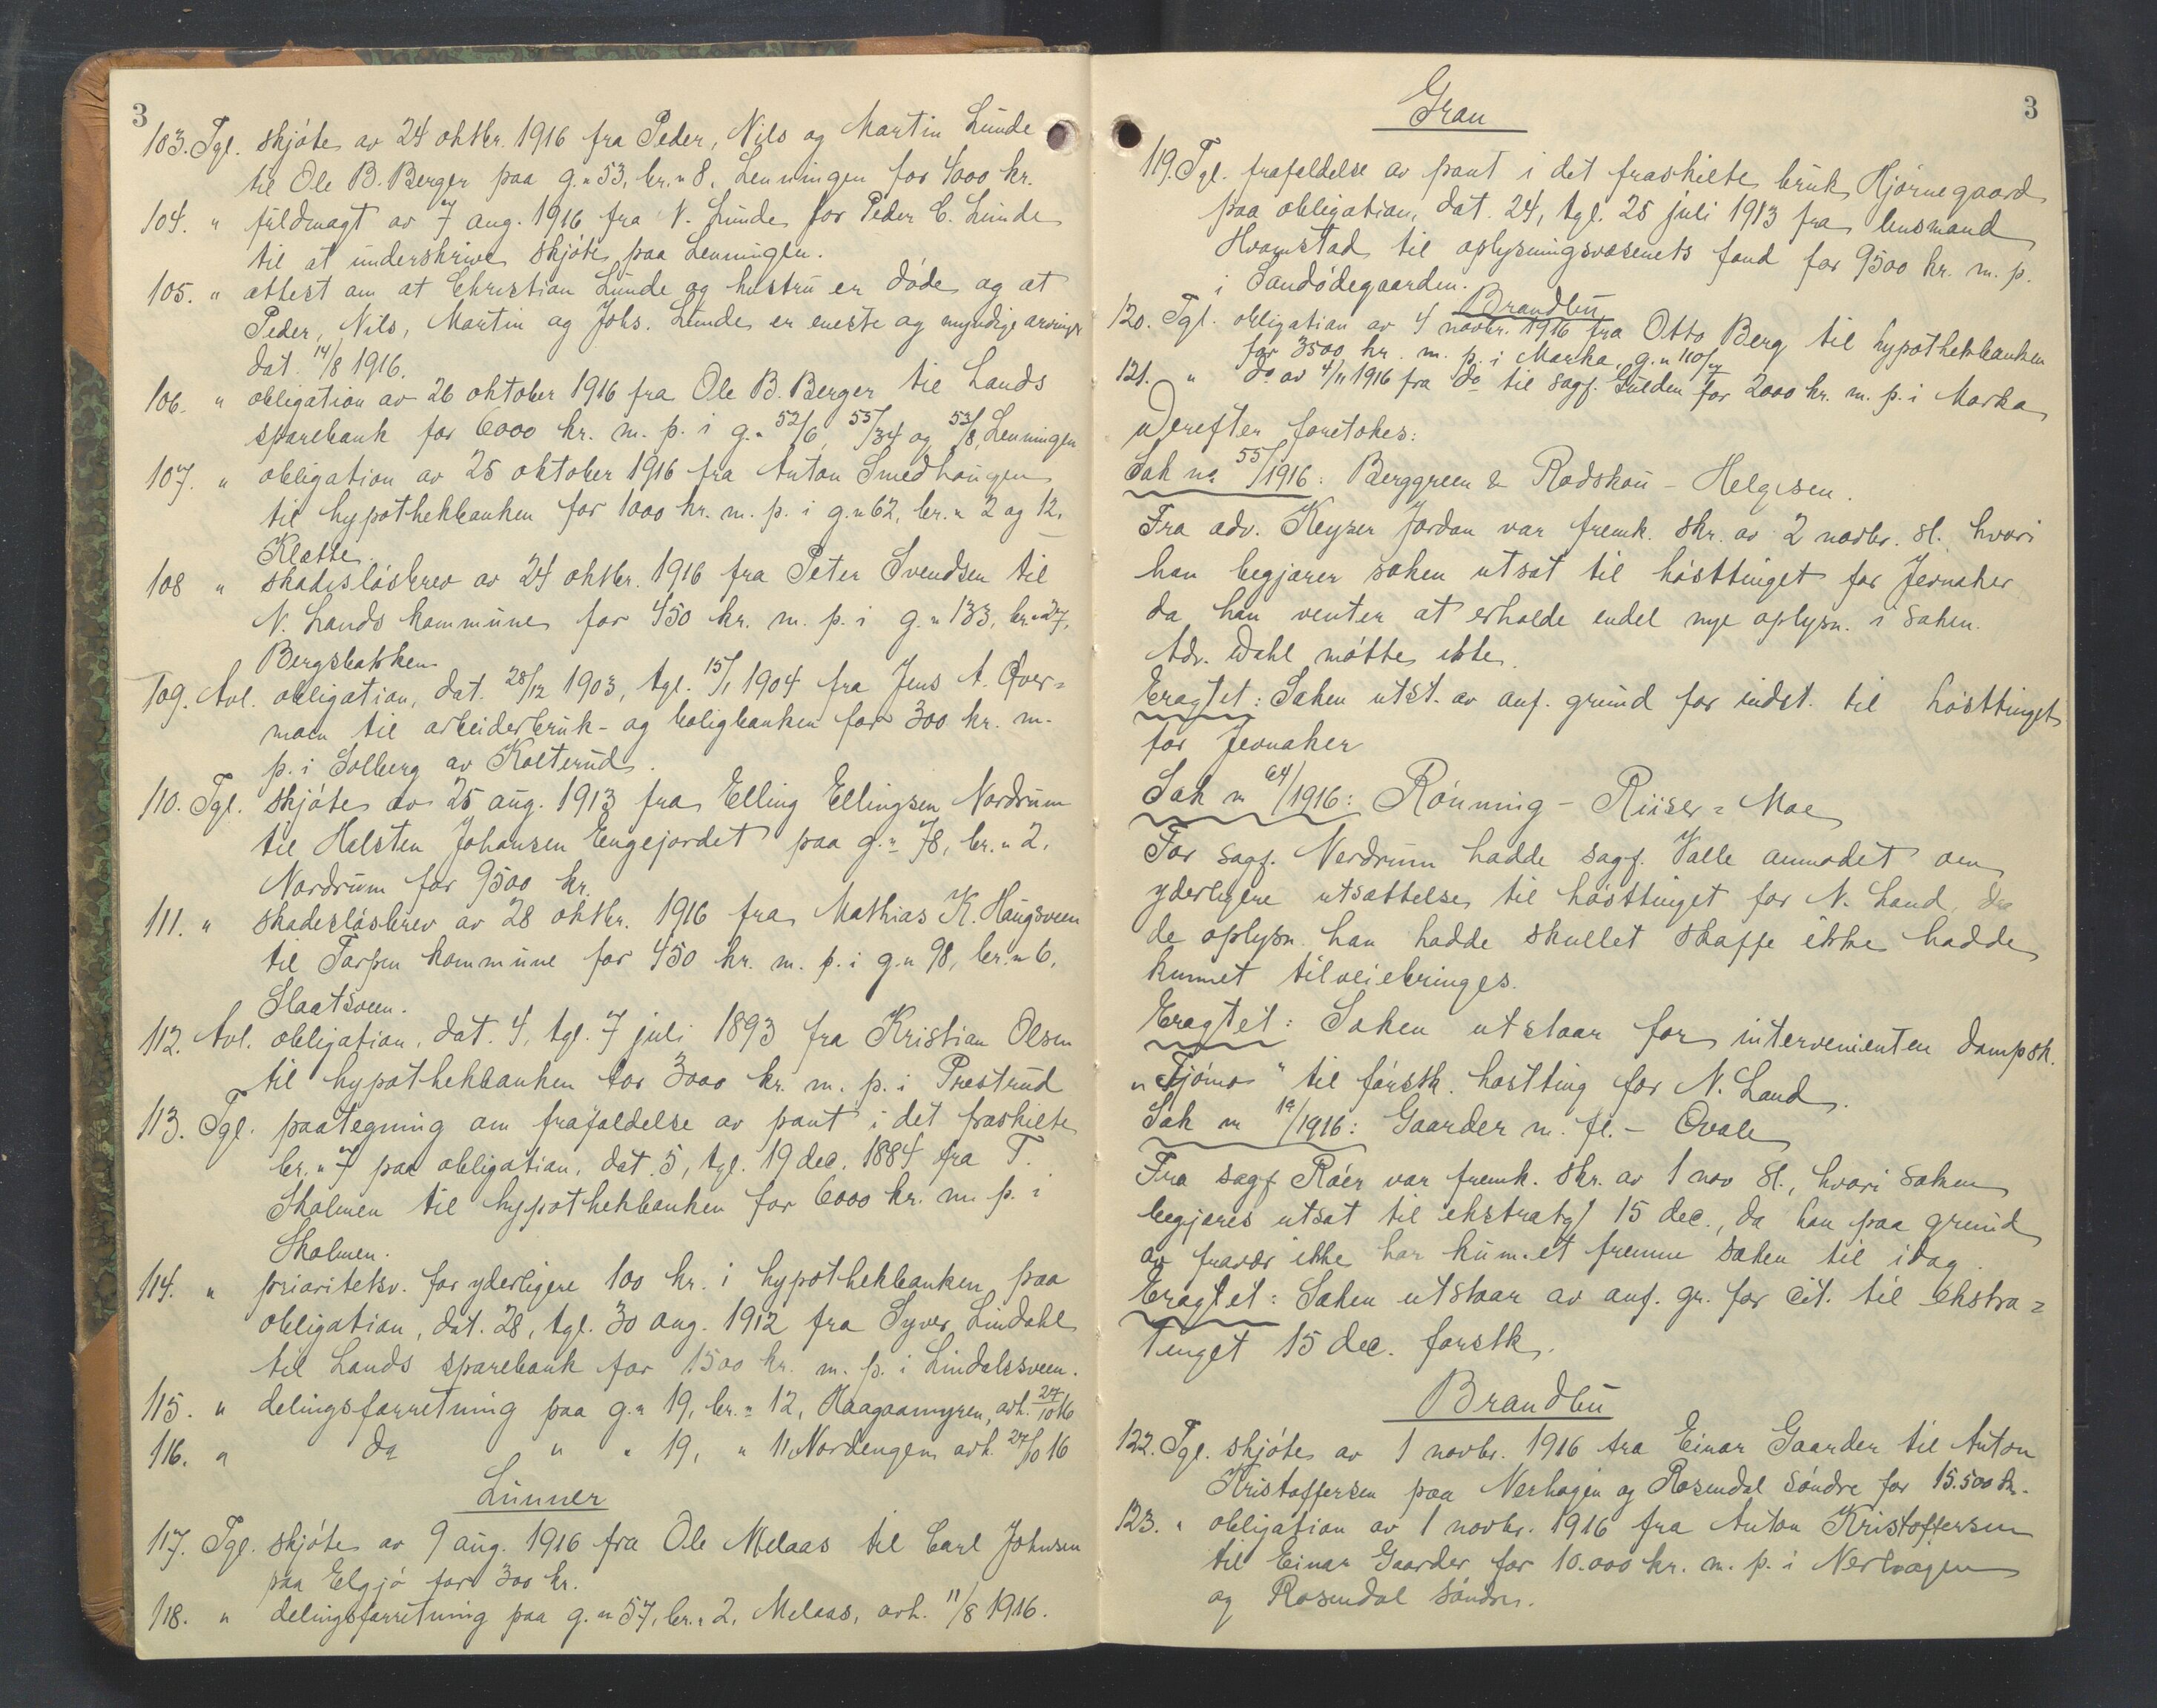 3
103. Tgl. skjøte av 24 oktbr. 1916 fra Peder, Nils og Martin Lunde
til Ole B. Berger paa g.n 53, br.n 8, Lenningen for 4000 kr.
104. " fuldmagt av 7 aug. 1916 fra N. Lunde for Peder C. Lunde
til at underskrive skjøte paa Lenningen.
105. " attest om at Christian Lunde og hustru er døde og at
Peder, Nils, Martin og Johs. Lunde er eneste og myndige arvinger
dat. 14/8 1916.
106. " obligation av 26 oktober 1916 fra Ole B. Berger til Lands
sparebank for 6000 kr. m. p. i g.n 52/6, 55/34 og 53/8, Lenningen
107. " obligation av 25 oktober 1916 fra Anton Smedhaugen
til hypothekbanken for 1000 kr. m. p. i g.n 62, br.n 2 og 12,
Klætte.
108 " skadesløsbrev av 24 oktbr. 1916 fra Peter Svendsen til
N. Lands kommune for 450 kr. m. p. i g.n 133, br.n 27,
Bergsbakken
109. Avl. obligation, dat. 28/12 1903, tgl. 15/1 1904 fra Jens A. Øver=
moen til arbeiderbruk- og boligbanken for 300 kr. m.
p. i Solberg av Kolterud.
110. Tgl. skjøte av 25 aug. 1913 fra Elling Ellingsen Nordrum
til Halsten Johansen Engejordet paa g.n 78, br.n 2,
Nordrum for 9500 kr.
111. " skadesløsbrev av 28 oktbr. 1916 fra Mathias K. Haugsveen
til Torpen kommune for 450 kr. m. p. i g.n 98, br.n 6,
Slaatsveen.
112. Avl. obligation, dat. 4, tgl. 7 juli 1893 fra Kristian Olsen
til hypothekbanken for 3000 kr. m. p. i Prestrud
113. Tgl. paategning om frafaldelse av pant i det fraskilte
br.n 7 paa obligation, dat. 5, tgl. 19 dec. 1884 fra T.
Skolmen til hypothekbanken for 6000 kr. m. p. i
Skolmen.
114. " prioritetsv. for yderligere 100 kr. i hypothekbanken paa
obligation, dat. 28, tgl. 30 aug. 1912 fra Syver Lindahl
til Lands sparebank for 1500 kr. m. p. i Lindalssveen.
115. " delingsforretning paa g.n 19, br.n 12, Haagaamyren, avh. 27/10 16
116. " do " " 19, " 11, Nordengen avh. 27/10 16
Lunner
117. Tgl. skjøte av 9 aug. 1916 fra Ole Melaas til Carl Johnsen
paa Elgjø for 300 kr.
118. " delingsforretning paa g.n 57, br.n 2, Melaas, avh. 11/8 1916.
3
Gran
119. Tgl. frafaldelse av pant i det fraskilte bruk Hjørnegaard
paa obligation, dat. 24, tgl. 25 juli 1913 fra lensmand
Hvamstad til oplysningsvæsenets fond for 9500 kr. m. p.
i Sandødegaarden.
Brandbu
120. Tgl. obligation av 4 novbr. 1916 fra Otto Berg til hypothekbanken
for 3500 kr. m. p. i Marka, g.n 110/7
121. " do av 4/11 1916 fra do til sagf. Gulden for 2000 kr. m. p. i Marka
Derefter foretokes:
Sak no 55/1916: Berggreen & Rodskou - Helgesen.
Fra adv. Keyser Jordan var fremk. skr. av 2 novbr. sl. hvori
han begjærer saken utsat til høsttinget for Jevnaker
da han venter at erholde endel nye oplysn. i saken.
Adv. Dahl møtte ikke.
Eragtet: Saken utst. av anf. grund for indst. til høsttinget
for Jevnaker
Sak no 64/1916: Rønning - Riiser = Moe
For sagf. Nerdrum hadde sagf. Valle anmodet om
yderligere utsættelse til høsttinget for N. Land, da
de oplysn. han hadde skullet skaffe ikke hadde
kunnet tilveiebringes.
Eragtet: Saken utstaar for intervenienten dampsk.
"Tjømø" til førstk. høstting for N. Land.
Sak no 19/1916: Gaarder m. fl. - Qvale
Fra sagf Róer var fremk. skr. av 1 nov sl., hvori saken
begjæres utsat til ekstratgt 15 dec., da han paa grund
av fravær ikke har kunnet fremme saken til idag.
Eragtet: Saken utstaar av anf. gr. for cit. til ekstra=
tinget 15 dec. førstk.
Brandbu
122. Tgl. skjøte av 1 novbr. 1916 fra Einar Gaarder til Anton
Kristoffersen paa Nerhagen og Rosendal søndre for 15.500 kr.
123. " obligation av 1 novbr. 1916 fra Anton Kristoffersen
til Einar Gaarder for 10.000 kr. m. p. i Nerhagen
og Rosendal søndre.